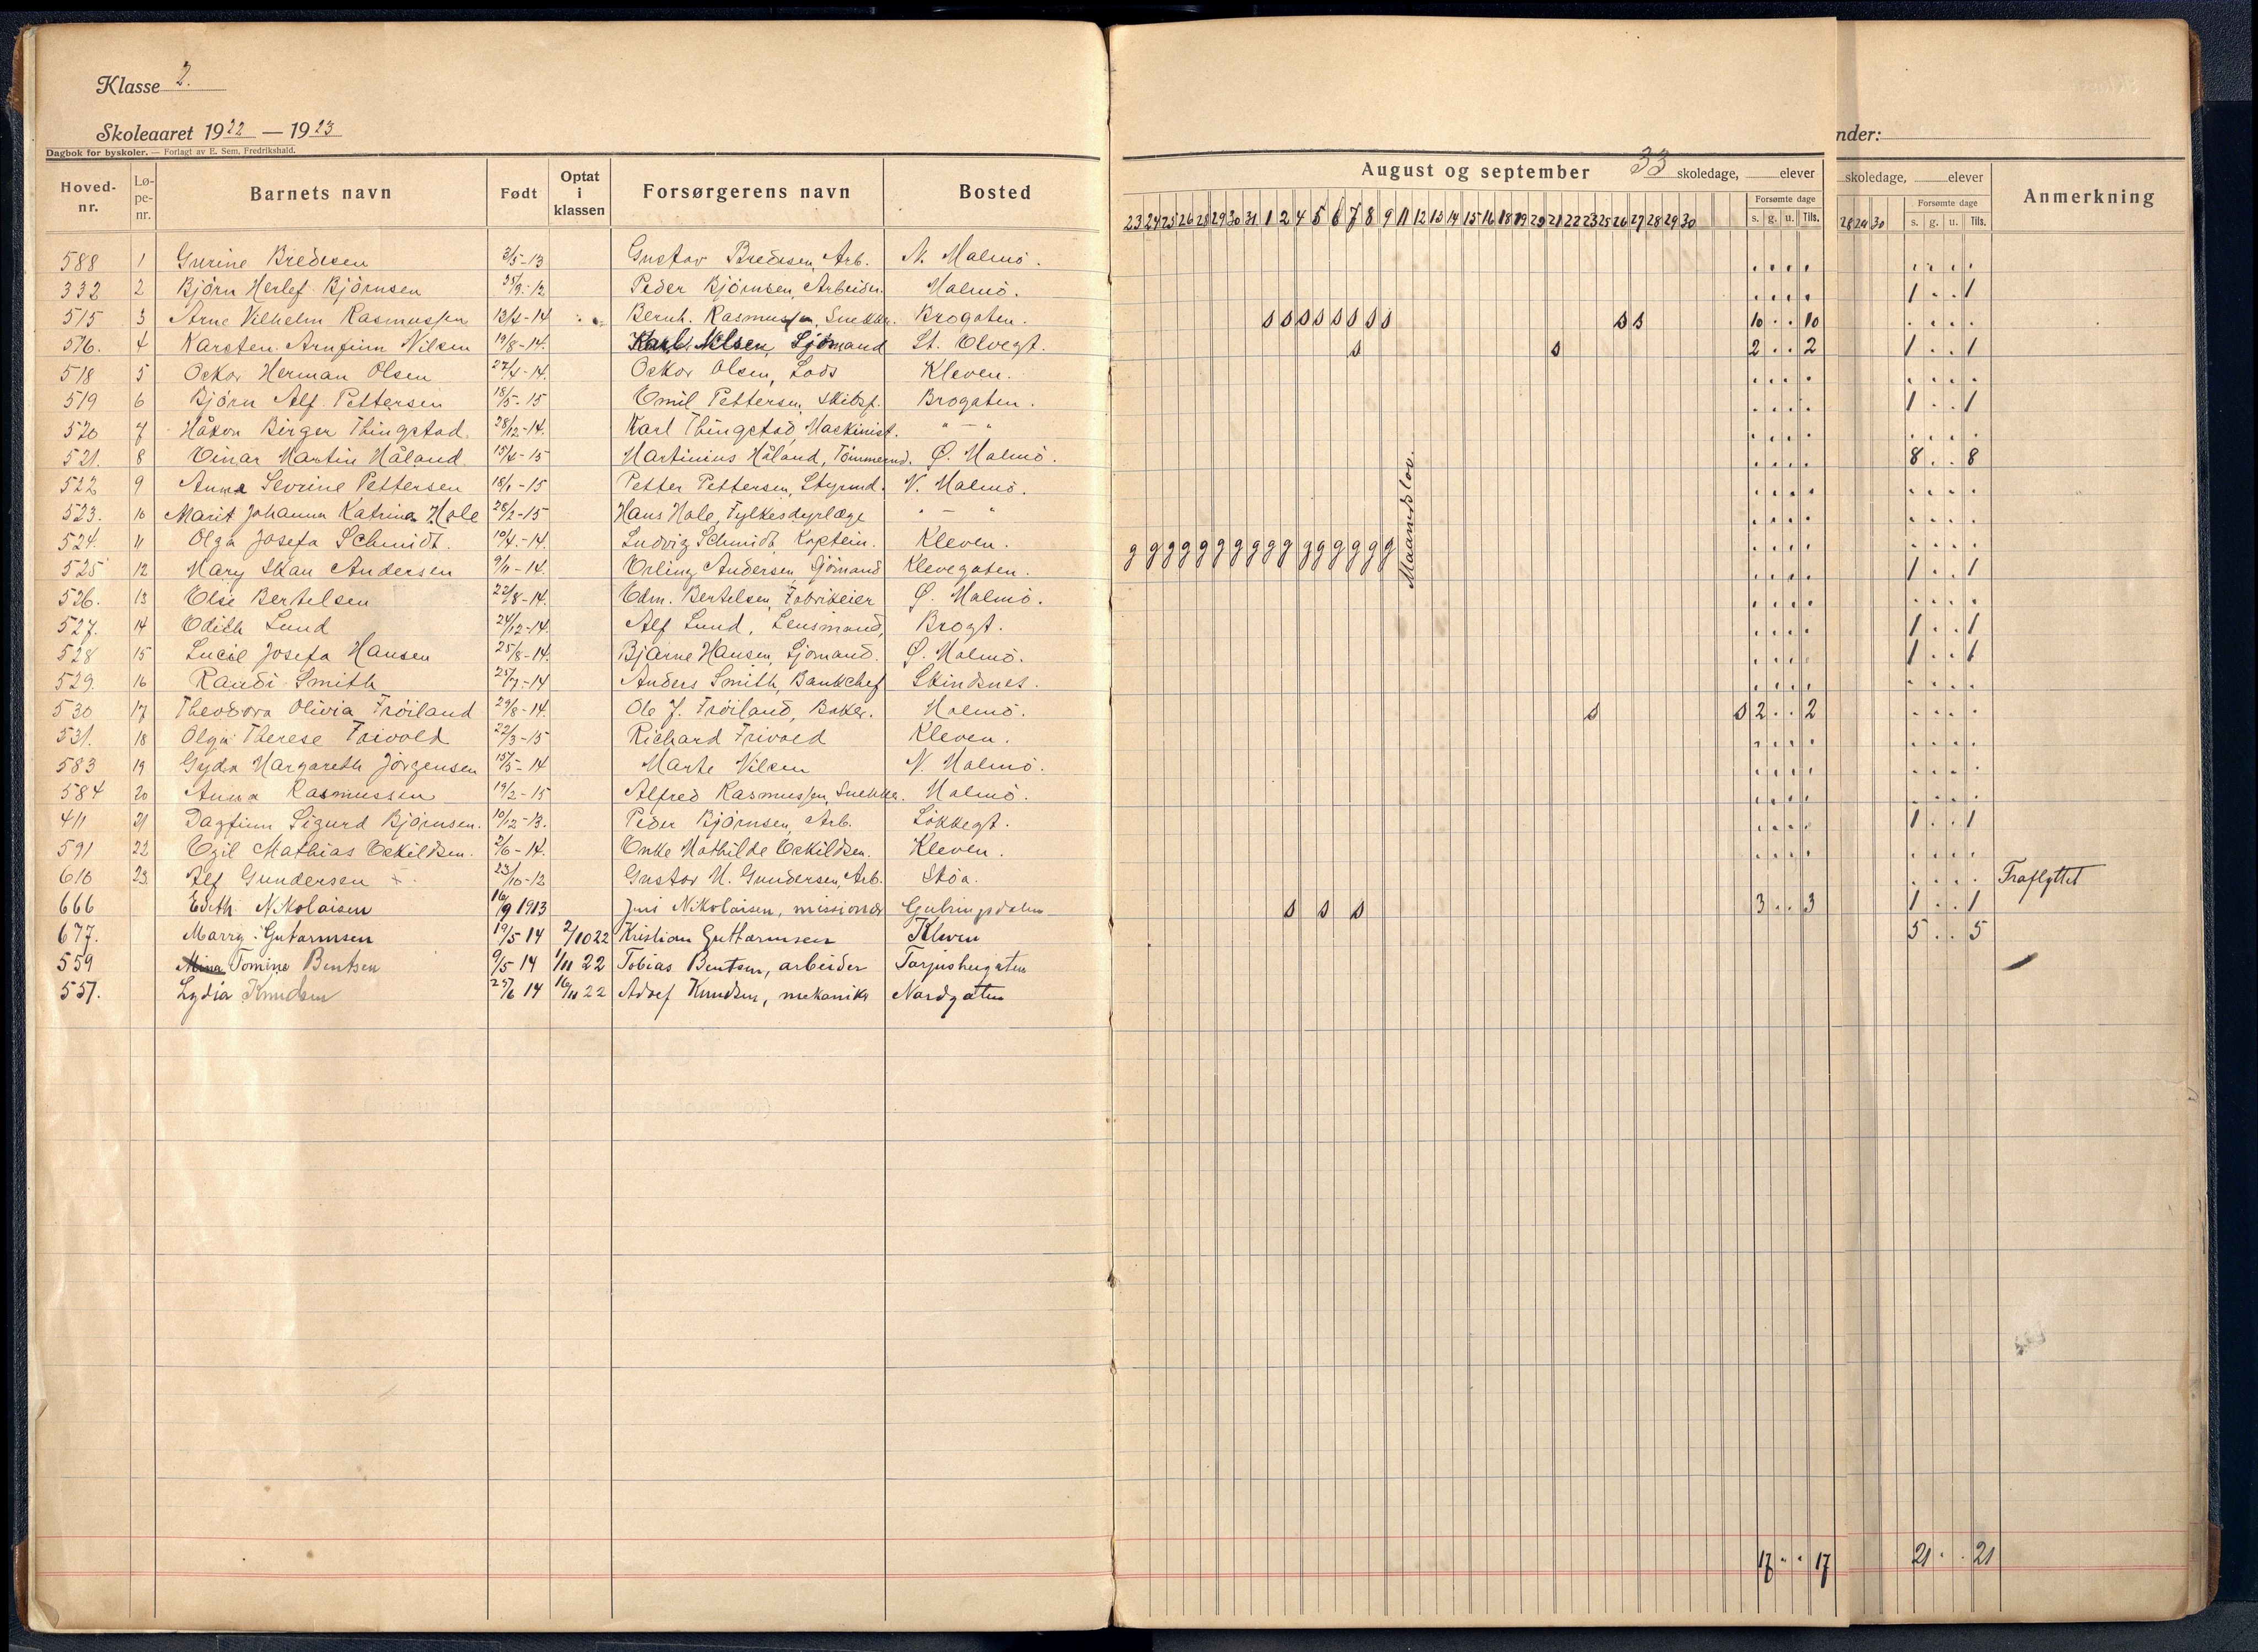 Klasse 2.
Skoleaaret 1922 — 1923
Dagbok for byskoler. — Forlagt av E. Sem, Fredrikshald.
Hoved-nr. Lø-pe-nr. Barnets navn Født Optat i klassen Forsørgerens navn Bosted
588 1 Gurine Bredesen 3/5-13 Gustav Bredesen, Arb. N. Malmö.
332 2 Björn Herlef Björnsen Peder Björnsen, Arbeider. Malmö.
515 3 Arne Vilhelm Rasmussen 13/4-14 Bernh. Rasmussen, Snekker. Brogaten.
516. 4 Karsten Arnfinn Nilsen 19/8-14. Karl Nilsen, Sjömand St. Elvegt.
518 5 Oskar Herman Olsen 27/4-14. Oskar Olsen, Lods Kleven.
519 6 Björn Alf Pettersen 18/5-15 Emil Pettersen, Skibsf. Brogaten.
520 7 Håkon Birger Thingstad. 28/12-14. Karl Thingstad, Maskinist. " — "
521. 8 Einar Martin Håland. 15/4-15 Martinius Håland, Tömmermd. Ø. Malmö.
522 9 Anna Sevrine Pettersen 18/1-15 Petter Pettersen, Styrmd. N. Malmö.
523. 10 Marit Johanna Katrina Hole 28/2-15 Hans Hole, Fylkesdyrlæge " — "
524. 11 Olga Josefa Schmidt. 10/4-14. Ludvig Schmidt, Kaptein. Kleven.
525 12 Mary Skau Andersen 9/1-14. Erling Andersen, Sjömand Klevegaten.
526. 13 Else Bertelsen 22/8-14. Edm. Bertelsen, Fabrikeier Ø. Malmö.
527. 14 Edith Lund 24/12-14. Alf Lund, Lensmand, Brogt.
528 15 Lucie Josefa Hansen 25/8-14. Bjarne Hansen, Sjömand. Ø. Malmö.
529. 16 Randi Smith 25/7-14 Anders Smith, Bankchef Skindsnes.
530 17 Theodora Olivia Fröiland 29/8-14. Ole J. Fröiland, Baker. Malmö.
531. 18 Olga Therese Frivold 22/3-15 Richard Frivold Kleven.
583 19 Gyda Margareth Jörgensen 15/5-14 Marte Nilsen N. Malmö.
584 20 Anna Rasmussen 19/2-15 Alfred Rasmussen, Snekker. Malmö.
411 21 Dagfinn Sigurd Björnsen. 10/12-13. Peder Björnsen, Arb. Lökkegt.
591 22 Egil Mathias Eskildsen. 2/6-14. Enke Mathilde Eskildsen. Kleven.
610 23. Alf Gundersen 23/10-12 Gustav M. Gundersen, Arb. Sköa.
666 Edith Nikolaisen 16/9 1913 Nikolaisen, missionær
677. Marry Gutormsen 19/5 14 2/10 22 Kristian Guttormsen Kleven
559 Tomine Bentsen 9/5 14 1/11 22 Tobias Bentsen, arbeider
557. Lydia Knudsen 25/6 14 16/11 22 Adolf Knudsen, mekaniker Nordgaten
August og september 33 skoledage, elever
23 24 25 26 28 29 30 31 1 2 4 5 6 7 8 9 11 12 13 14 15 16 18 19 20 21 22 23 25 26 27 28 29 30
Forsømte dage
s. g. u. Tils.
s s s s s s s s s s 10 . . 10
s s 2 . . 2
g g g g g g g g g g g g g g g g
Maanedslov.
s s 2 . . 2
s s s 3 . . 3
17 . . 17
nder:
skoledage, elever Anmerkning
28 29 30
Forsømte dage
s. g. u. Tils.
1 . . 1
1 . . 1
1 . . 1
8 . . 8
1 . . 1
1 . . 1
1 . . 1
1 . . 1
Fraflyttet
1 . . 1
5 . . 5
21 . . 21